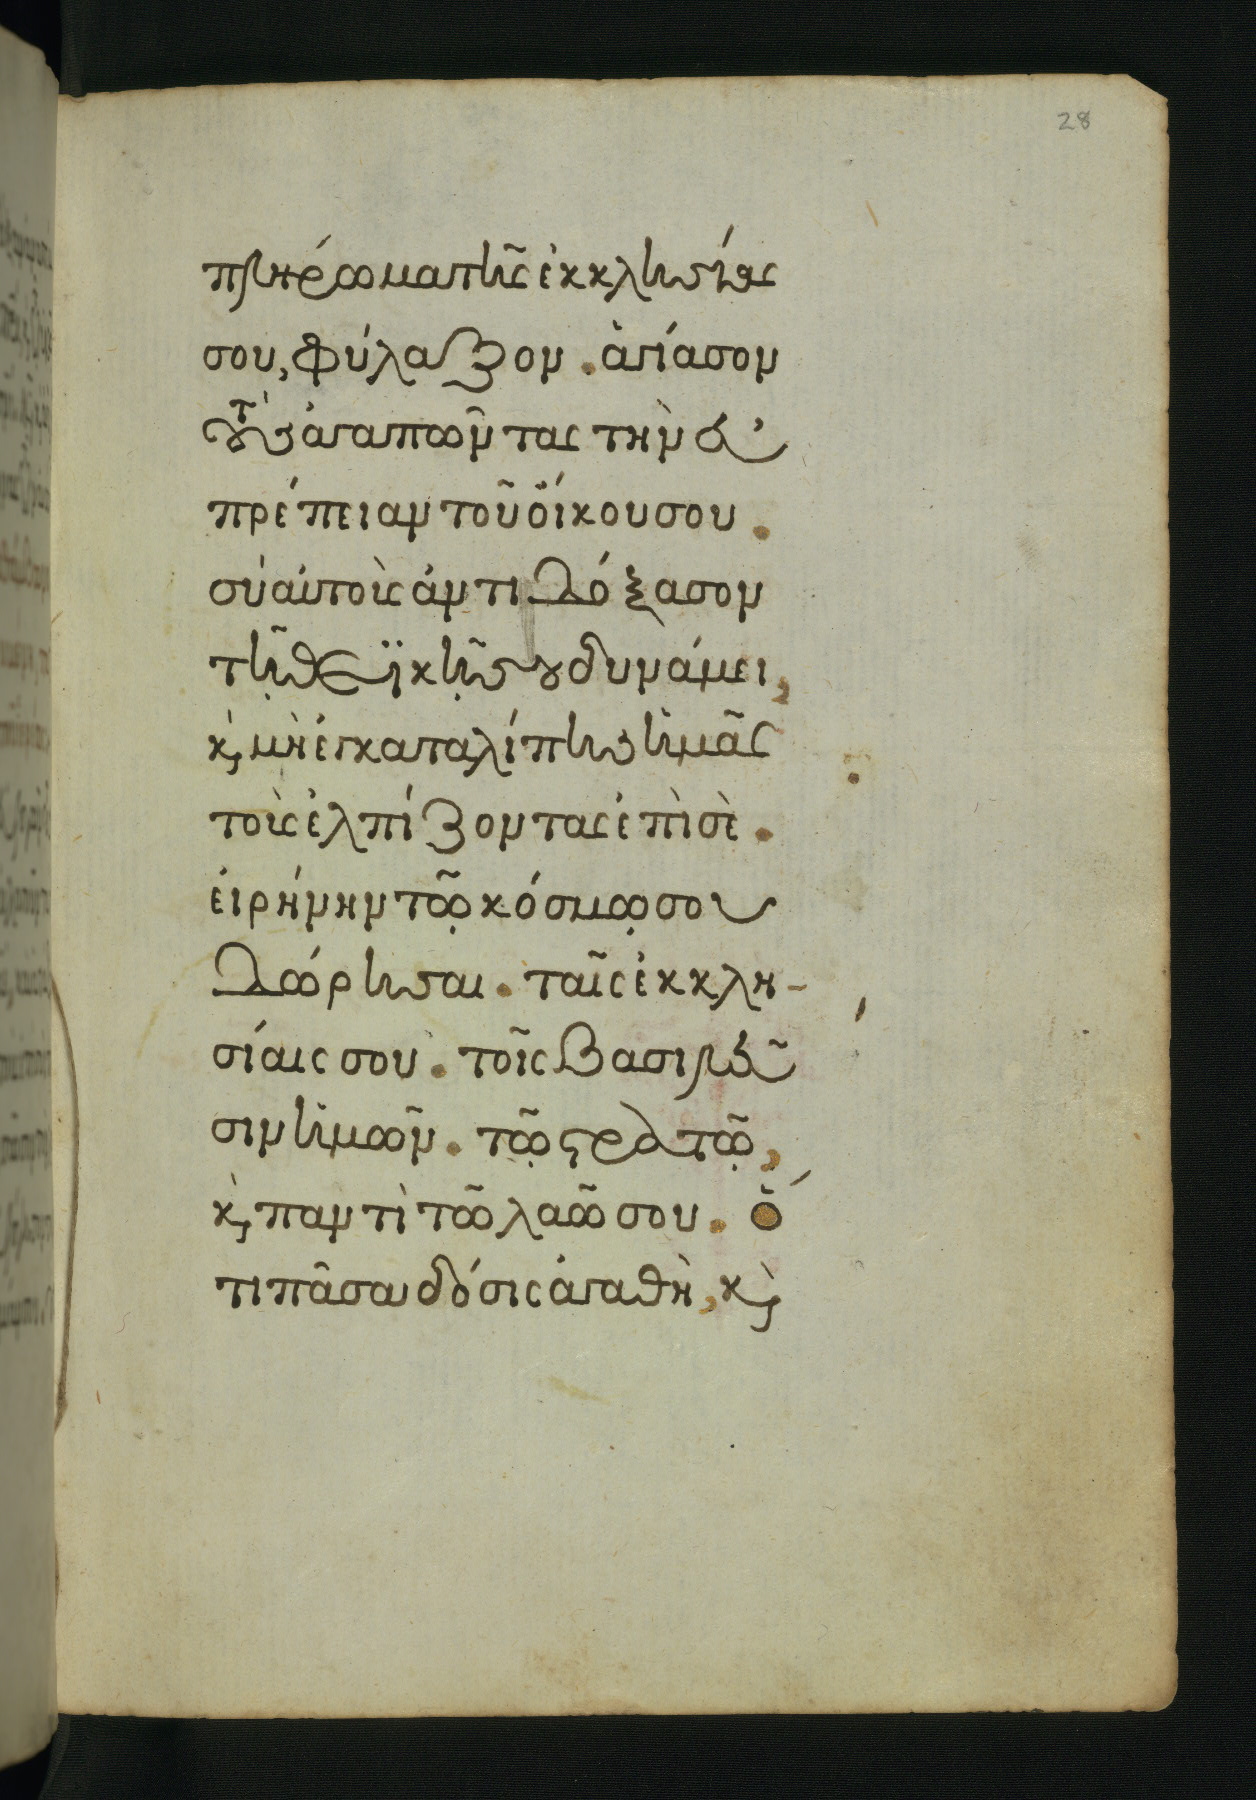 28
πλήρωμα τῆς ἐκκλησίας
σου, φύλαξον . ἁγίασον
τοὺς ἀγαπῶντας τὴν εὐ
πρέπειαν τοῦ ὅικου σου .
σὺ αὐτοὺς ἀντιδόξασον
τῇ θεϊκῇ σου δυνάμει,
κ, μὴ ἐγκαταλίπης ἡμᾶς
τοὺς ἐλπίζοντας ἐπὶ σὲ .
ἐιρήνην τῷ κόσμῳ σου
δώρησαι . ταῖς ἐκκλη-
σίαις σου . τοῖς βασιλεῦ
σιν ἡμῶν . τῷ στρατῷ,
κ, παντὶ τῶ λαῶ σου . ὅ
τι πᾶσα δόσις ἀγαθὴ, κ,